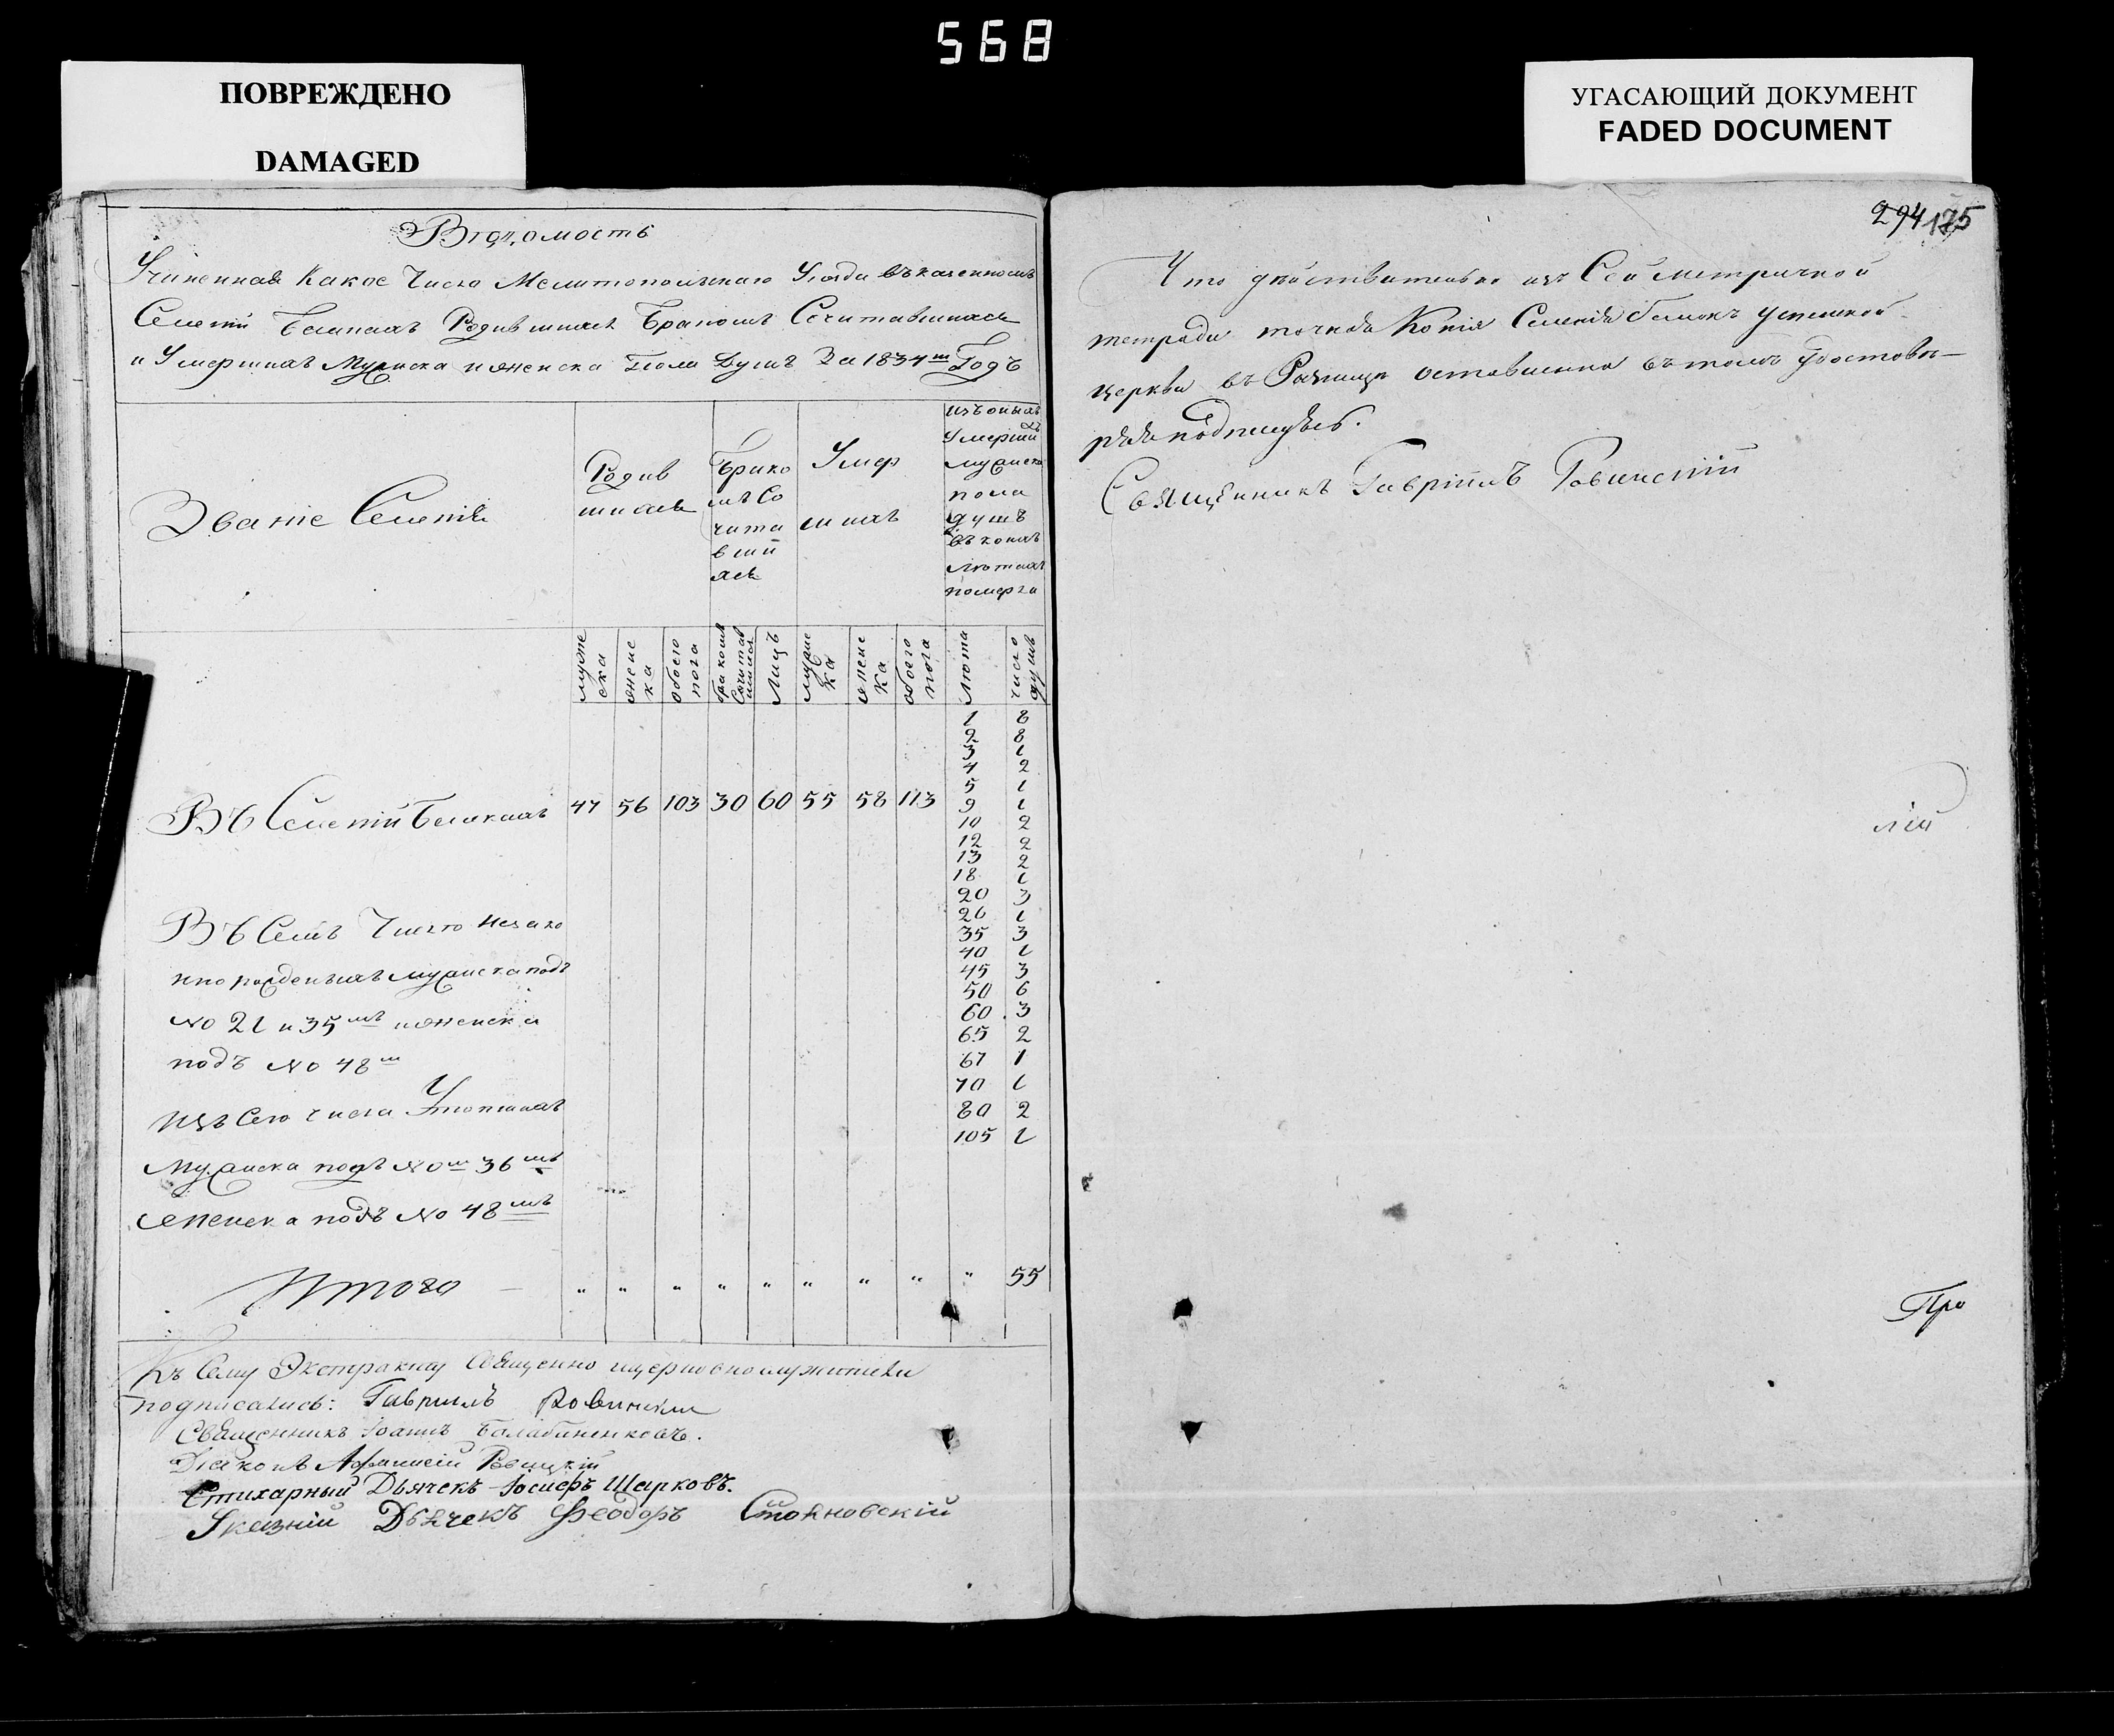 568
ПОВРЕЖДЕНО
DAMAGED
УГАСАЮЩИЙ ДОКУМЕНТ
FADED DOCUMENT
Вѣдомость
Учиненная Какое Число Мелитопольскаго Уѣзда въ казенномъ
Селеніи Белкахъ Родившихся Бракомъ Сочитавшихся
и Умершихъ Мужеска и женска Пола Душъ За 1834й Годъ
Званіе Селенія
Родив
шихся
Брако
мъ Со
чита
вший
ясь
Умер
шихъ
изъ оныхъ
Умерши
хъ
мужеска
пола
душъ
въ коихъ
лѣтахъ
померли
муже
ска
женс
ка
обоего
пола
бракомъ
Сочитав
шихся
Лицъ
мужес
ка
женс
ка
обоего
пола
лѣта
число
душъ
1 8
2 8
3 1
4 2
5 1
Въ Селеніи Белкахъ 47 56 103 30 60 55 58 113
9 1
10 2
12 2
13 2
18 1
20 3
26 1
35 3
40 1
45 3
50 6
60 3
65 2
67 1
70 1
80 2
105 1
Въ Семъ Числѣ незако
ннорожденыхъ мужеска подъ
No 21 и 35мъ и женска
подъ No 48м
Изъ Сего числа Утопшихъ
Мужеска подъ Noм 36мъ
женска подъ No 48мъ
Итого — " " " " " " " " " 55
Къ Сему Экстракту Священно и церковнослужители
подписались: Гавриилъ Ровинский
Священникъ Іоаннъ Балабаненковъ.
Діаконъ Афанасій
Стихарный Дьячекъ Іосифъ Шарковъ.
Указній Дьячекъ Феодоръ Стояновскій
294 175
Что дѣйствительно изъ Сей метричной
тетради точная Копія Селенія Белокъ Успенской
церкви въ Ризницѣ оставленна въ томъ удостовѣ—
ряя подпишусь.
Священникъ Гавріилъ Ровинскій
лій
Про